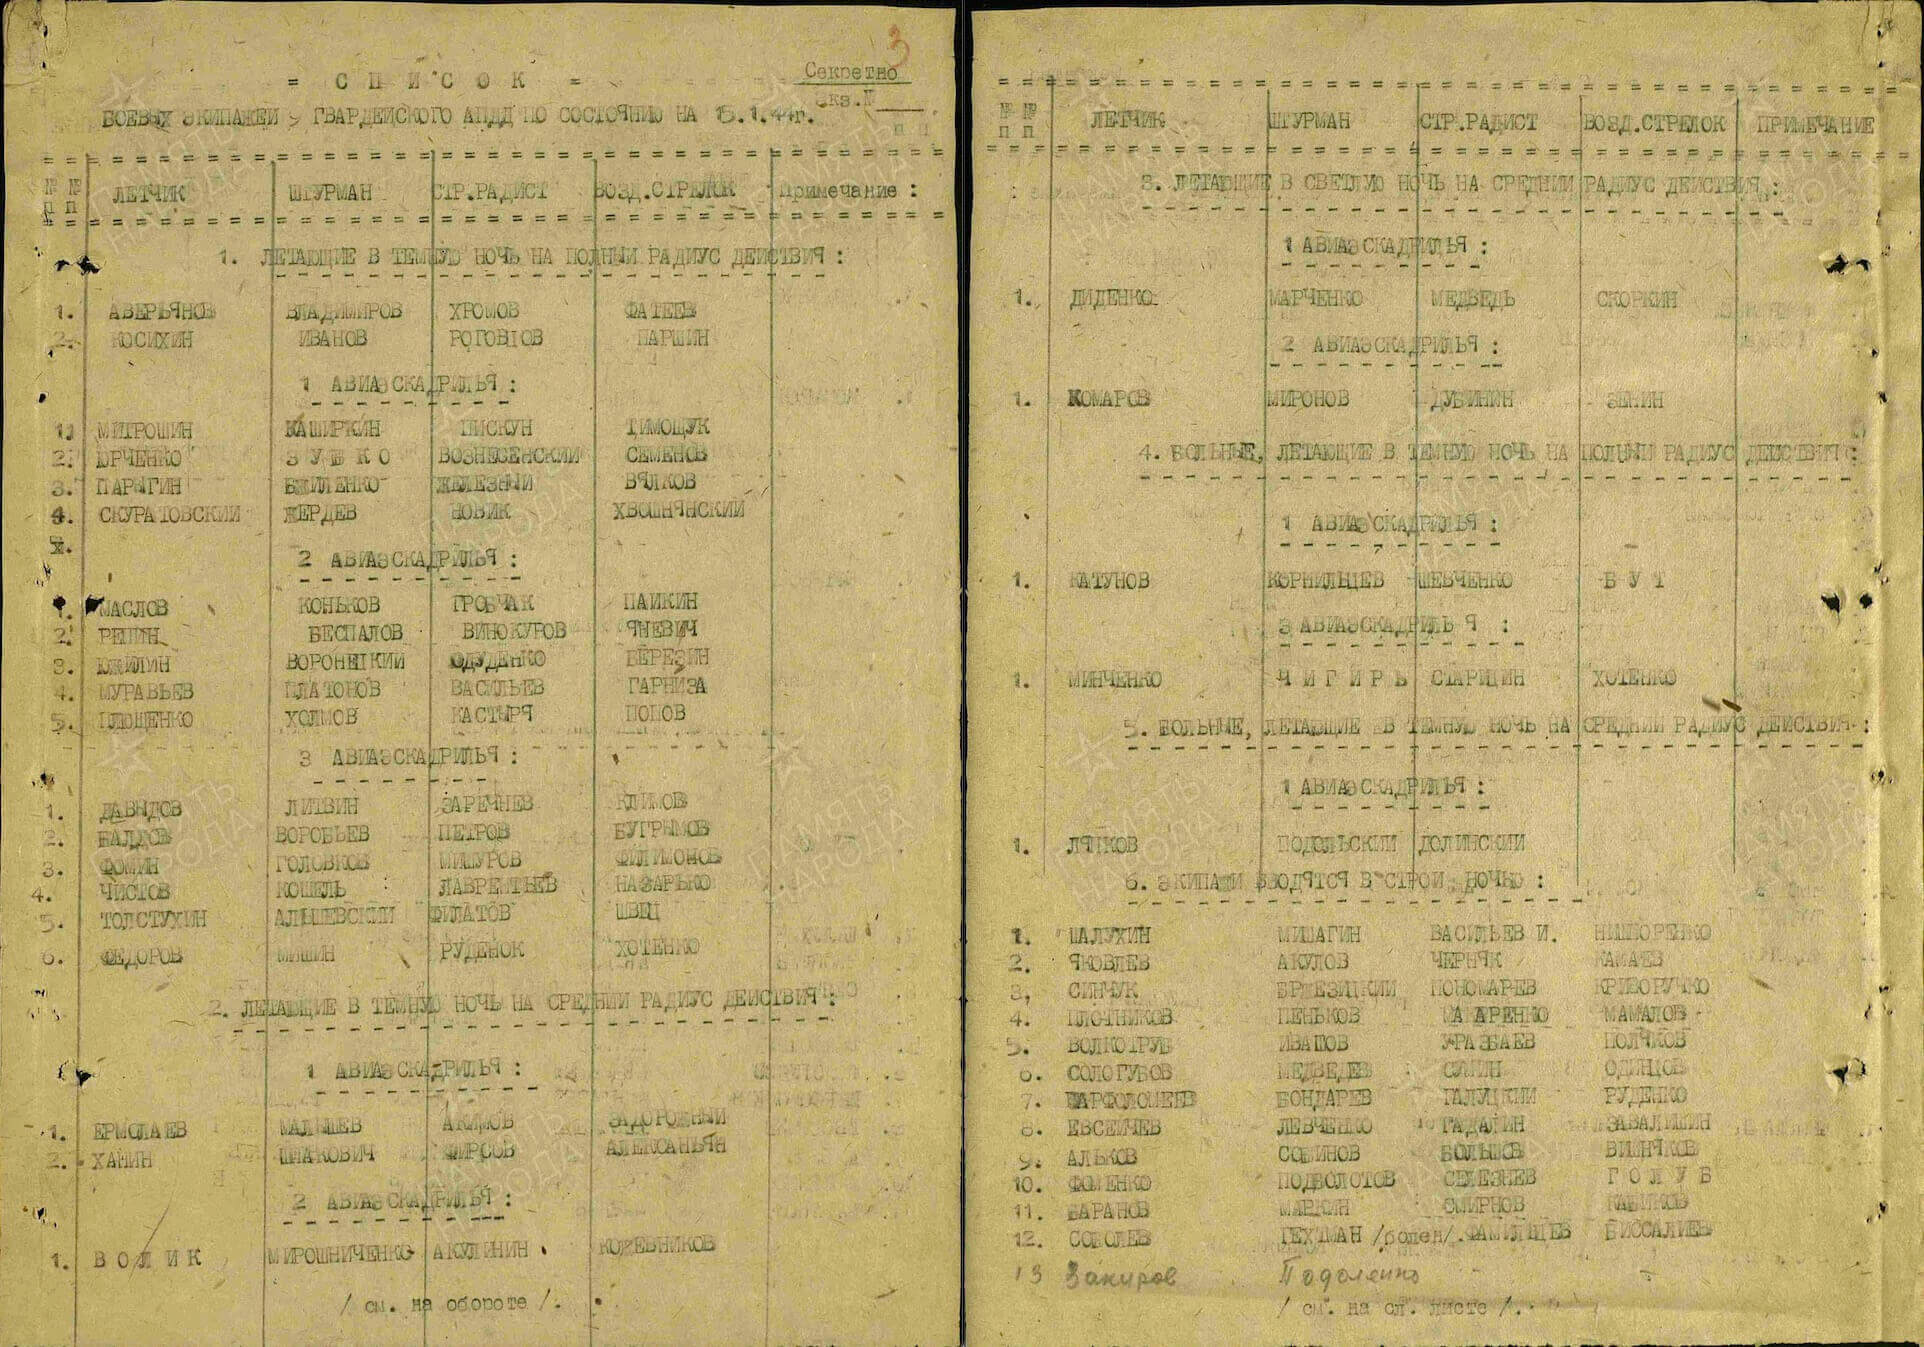 3
= СПИСОК =
Секретно
экз.№
БОЕВЫХ ЭКИПАЖЕЙ 9 ГВАРДЕЙСКОГО АПДД ПО СОСТОЯНИЮ НА 15.1.44г.
№№ пп ЛЕТЧИК ШТУРМАН СТР.РАДИСТ ВОЗД.СТРЕЛОК Примечание :
1. ЛЕТАЮЩИЕ В ТЕМНУЮ НОЧЬ НА ПОЛНЫЙ РАДИУС ДЕЙСТВИЯ :
1. АВЕРЬЯНОВ ВЛАДИМИРОВ ХРОМОВ ФАТЕЕВ
2. КОСИХИН ИВАНОВ РОГОВЦОВ ПАРШИН
1 АВИАЭСКАДРИЛЬЯ :
1. МИТРОШИН КАШИРКИН ПИСКУН ТИМОЩУК
2. ЮРЧЕНКО ЗУБКО ВОЗНЕСЕНСКИЙ СЕМЕНОВ
3. ПАРЫГИН ЖЕЛЕЗНЫЙ ВЯЛКОВ
4. СКУРАТОВСКИЙ ЖЕРДЕВ НОВИК ХВОШНЯНСКИЙ
2 АВИАЭСКАДРИЛЬЯ :
1. МАСЛОВ КОНЬКОВ ГРОБЧАК ПАЙКИН
2. РЕПИН БЕСПАЛОВ ВИНОКУРОВ ЯНЕВИЧ
3. ЮЖИЛИН ВОРОНЕЦКИЙ ОДУДЕНКО БЕРЕЗИН
4. МУРАВЬЕВ ПЛАТОНОВ ВАСИЛЬЕВ ГАРНИЗА
5. ПЛЮЩЕНКО ХОЛМОВ КАСТЫРЯ ПОПОВ
3 АВИАЭСКАДРИЛЬЯ :
1. ДАВЫДОВ ЛИТВИН ЗАРЕЧНЕВ КЛИМОВ
2. БАЛДОВ ВОРОБЬЕВ ПЕТРОВ БУГРЫМОВ
3. ФОМИН ГОЛОВКОВ МИШУРОВ ФИЛИМОНОВ
4. ЧИСТОВ КОШЕЛЬ ЛАВРЕНТЬЕВ НАЗАРЬКО
5. ТОЛСТУХИН АЛЬШЕВСКИЙ ФИЛАТОВ ШВЕЦ
6. ФЕДОРОВ МИШИН РУДЕНОК ХОТЕНКО
2. ЛЕТАЮЩИЕ В ТЕМНУЮ НОЧЬ НА СРЕДНИЙ РАДИУС ДЕЙСТВИЯ :
1 АВИАЭСКАДРИЛЬЯ :
1. ЕРМОЛАЕВ МАЛЫШЕВ АКИМОВ ЗАДОРОЖНЫЙ
2. ХАНИН ШМАКОВИЧ ФИРСОВ АЛЕКСАНЬЯН
2 АВИАЭСКАДРИЛЬЯ :
1. ВОЛИК МИРОШНИЧЕНКО АКУЛИНИН КОЖЕВНИКОВ
/ см. на обороте /.
№№ пп ЛЕТЧИК ШТУРМАН СТР.РАДИСТ ВОЗД.СТРЕЛОК ПРИМЕЧАНИЕ
3. ЛЕТАЮЩИЕ В СВЕТЛУЮ НОЧЬ НА СРЕДНИЙ РАДИУС ДЕЙСТВИЯ :
1 АВИАЭСКАДРИЛЬЯ :
1. ДИДЕНКО МАРЧЕНКО МЕДВЕДЬ СКОРКИН
2 АВИАЭСКАДРИЛЬЯ :
1. КОМАРОВ МИРОНОВ ДУБИНИН ЗЕНИН
4. БОЛЬНЫЕ, ЛЕТАЮЩИЕ В ТЕМНУЮ НОЧЬ НА ПОЛНЫЙ РАДИУС ДЕЙСТВИЯ :
1 АВИАЭСКАДРИЛЬЯ :
1. КАТУНОВ КОРНИЛЬЦЕВ ШЕВЧЕНКО БУТ
3 АВИАЭСКАДРИЛЬЯ :
1. МИНЧЕНКО ЧИГИРЬ СТАРИЦИН ХОТЕНКО
5. БОЛЬНЫЕ, ЛЕТАЮЩИЕ В ТЕМНУЮ НОЧЬ НА СРЕДНИЙ РАДИУС ДЕЙСТВИЯ :
1 АВИАЭСКАДРИЛЬЯ :
1. ЛЯПКОВ ПОДОЛЬСКИЙ ДОЛИНСКИЙ
6. ЭКИПАЖИ ВВОДЯТСЯ В СТРОЙ НОЧЬЮ :
1. ШАЛУХИН МИШАГИН ВАСИЛЬЕВ И. НИШПОРЕНКО
2. ЯКОВЛЕВ АКУЛОВ ЧЕРНЯК КАМАЕВ
3. СИНЧУК БРЖЕЗИЦКИЙ ПОНОМАРЕВ КРИВОРУЧКО
4. ПЛОТНИКОВ ПЕНЬКОВ МАКАРЕНКО МАМАЛОВ
5. ВОЛКОТРУБ ИВАШОВ УРАЗБАЕВ ПОЛЯКОВ
6. СОЛОГУБОВ МЕДВЕДЕВ ОДИНЦОВ
7. ВАРФОЛОМЕЕВ БОНДАРЕВ ГАЛУЦКИЙ РУДЕНКО
8. ЕВСЕЙЧЕВ ЛЕВЧЕНКО ГАДАЛИН ЗАВАЛИШИН
9. АЛЬКОВ СОВИНОВ БОЛЬШОВ ВИШНЯКОВ
10. ФОМЕНКО ПОДВОЛОТОВ СЕЛЕЗНЕВ ГОЛУБ
11. БАРАНОВ МАРКИН СМИРНОВ
12. СОБОЛЕВ ГЕХТМАН /болен/. ФАМИЛЬЦЕВ БИССАЛИЕВ
13 Закиров Подоленко
/ см. на сл. листе /.